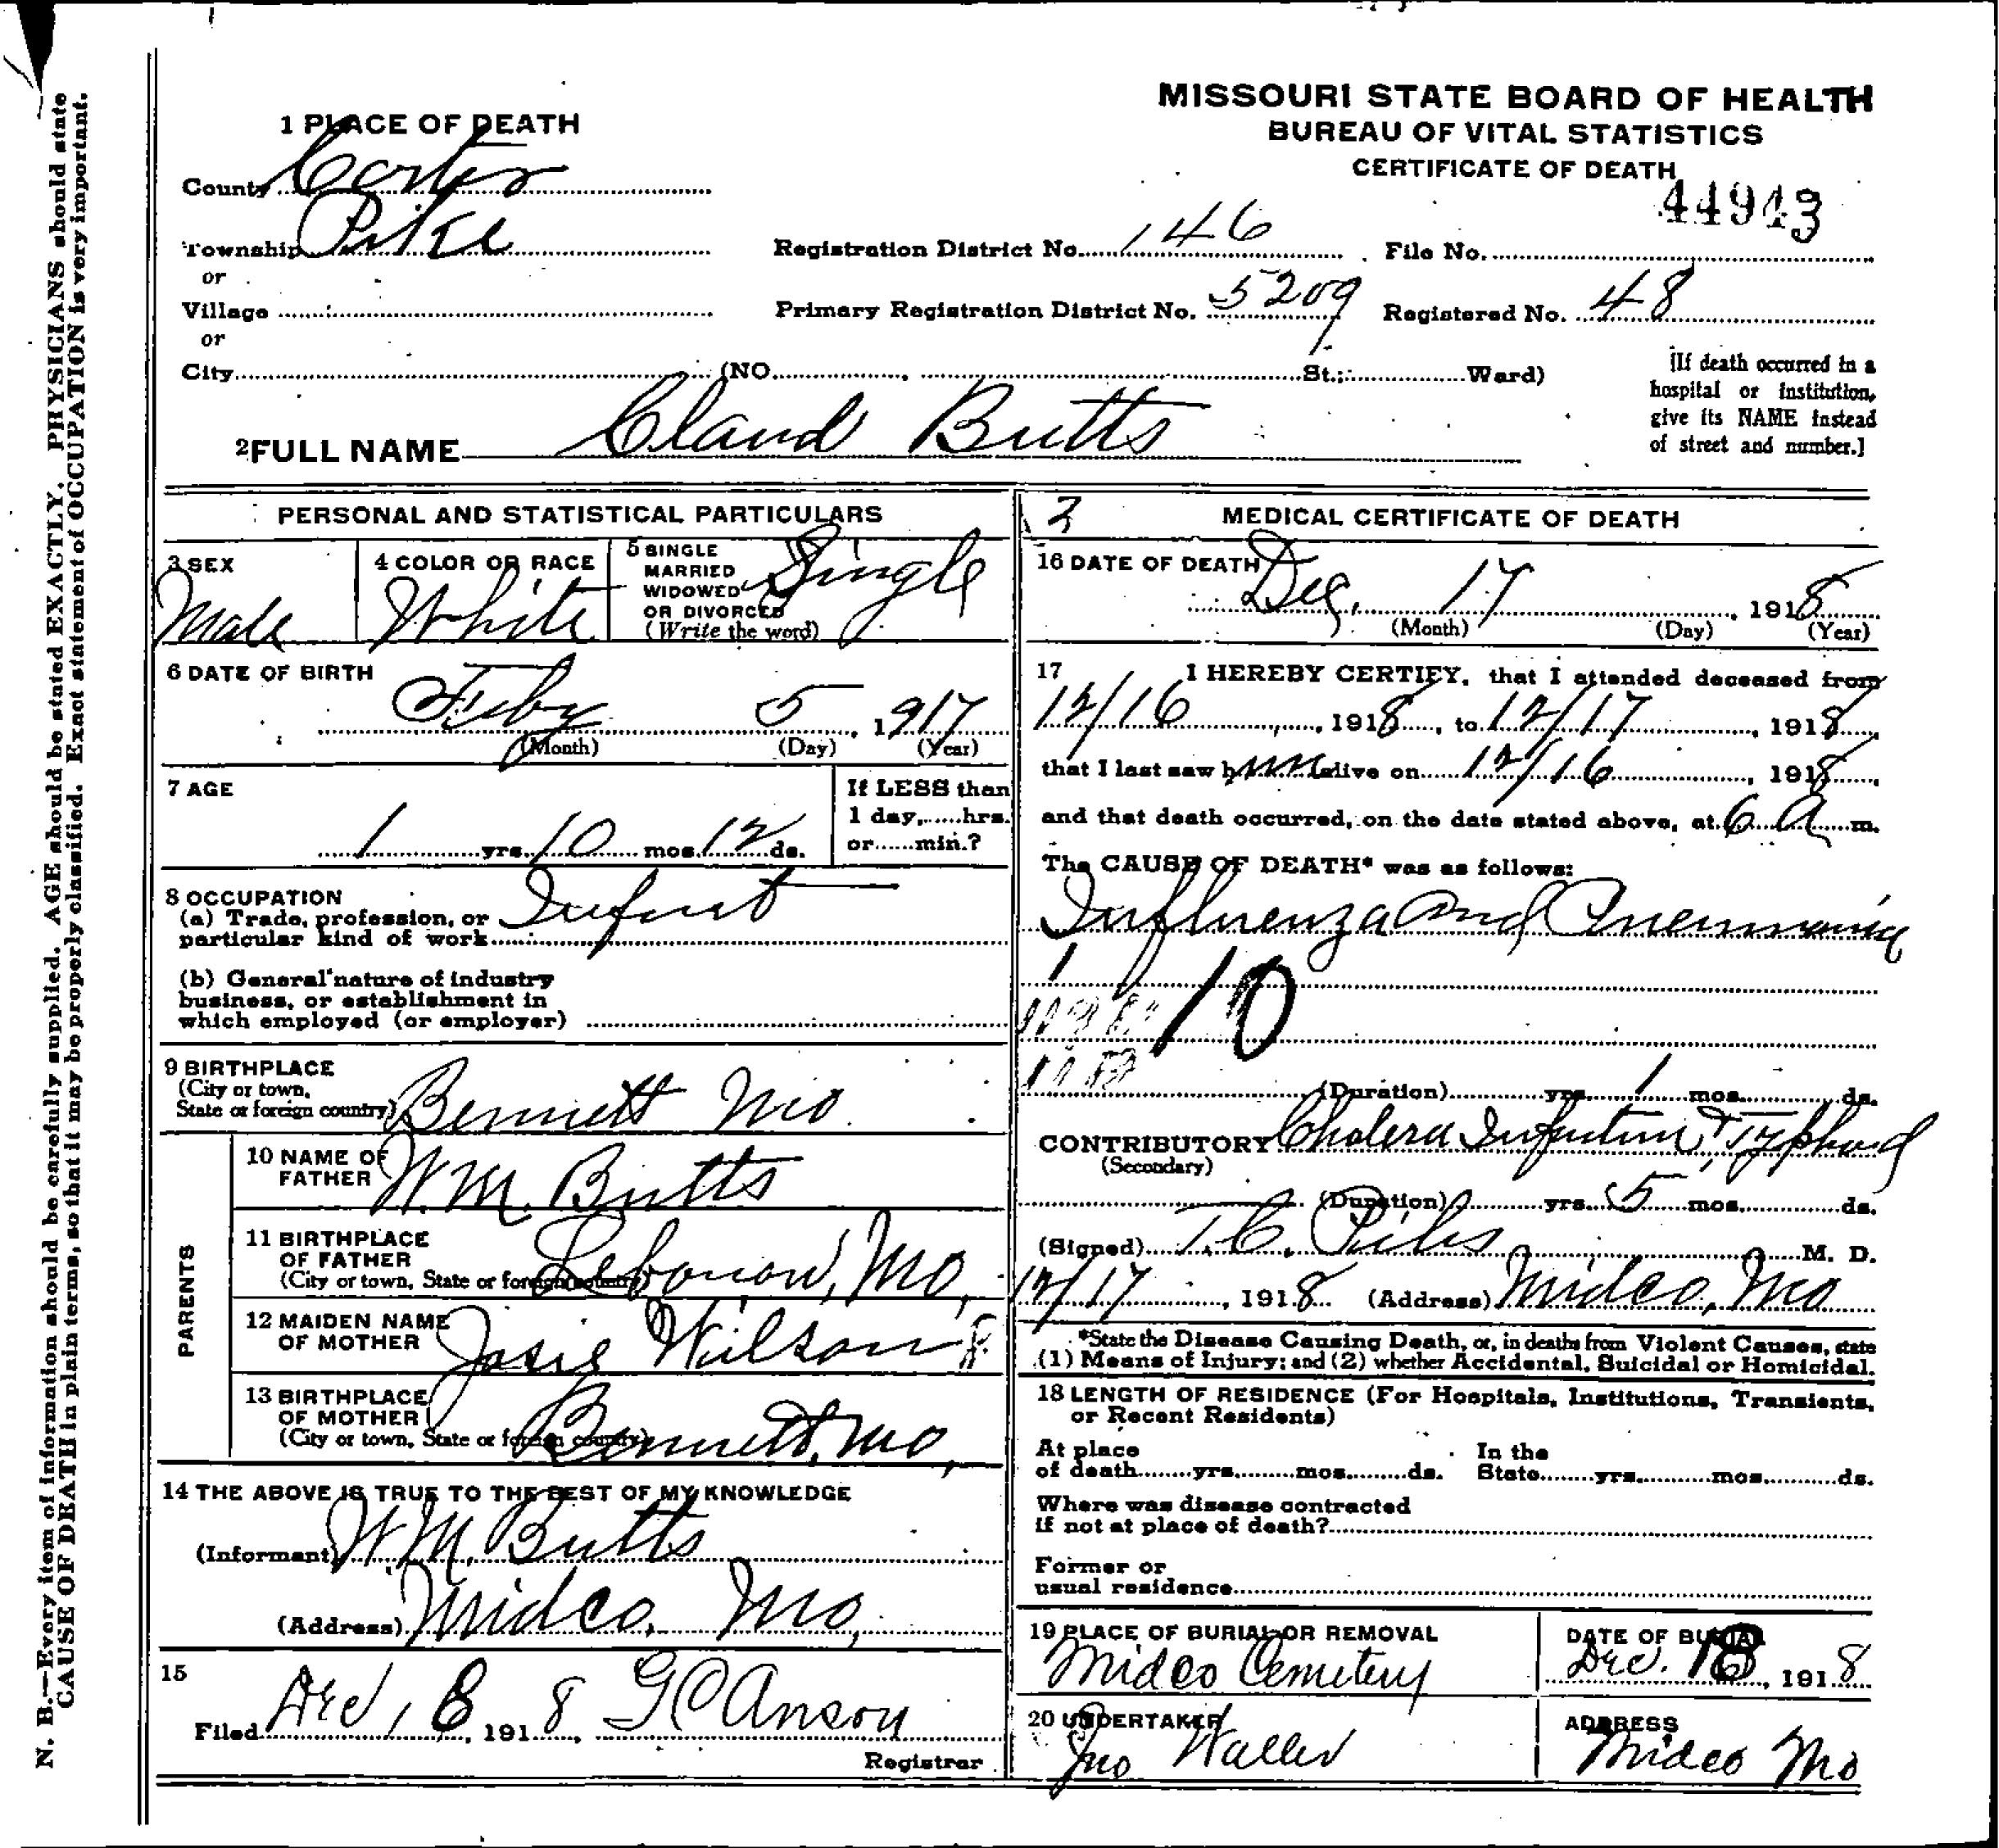 MISSOURI STATE BOARD OF HEALTH
BUREAU OF VITAL STATISTICS
CERTIFICATE OF DEATH
44943
1 PLACE OF DEATH
County Carter
Township Pike
or
Village
or
City (NO. St.; Ward)
Registration District No. 146
File No.
Primary Registration District No. 5209
Registered No. 48
[If death occurred in a
hospital or institution,
give its NAME instead
of street and number.]
2 FULL NAME Claud Butts
PERSONAL AND STATISTICAL PARTICULARS
3 SEX
Male
4 COLOR OR RACE
White
5 SINGLE
MARRIED
WIDOWED
OR DIVORCED
(Write the word)
Single
6 DATE OF BIRTH
Feby 5, 1917
(Month) (Day) (Year)
7 AGE
1 yrs. 10 mos. 12 ds.
If LESS than
1 day,......hrs.
or......min.?
8 OCCUPATION
(a) Trade, profession, or
particular kind of work Infant
(b) General nature of industry
business, or establishment in
which employed (or employer)
9 BIRTHPLACE
(City or town,
State or foreign country) Bennett Mo.
PARENTS
10 NAME OF
FATHER W.M. Butts
11 BIRTHPLACE
OF FATHER
(City or town, State or foreign country) Lebonon, Mo,
12 MAIDEN NAME
OF MOTHER Josie Wilson
13 BIRTHPLACE
OF MOTHER
(City or town, State or foreign country) Bennett, Mo,
14 THE ABOVE IS TRUE TO THE BEST OF MY KNOWLEDGE
(Informant) W.M. Butts
(Address) Midco, Mo,
15
Filed Dec, 8, 1918, G C Anson
Registrar
3
MEDICAL CERTIFICATE OF DEATH
16 DATE OF DEATH
Dec, 17, 1918
(Month) (Day) (Year)
17 I HEREBY CERTIFY, that I attended deceased from
12/16, 1918, to 12/17, 1918,
that I last saw him alive on 12/16, 1918,
and that death occurred, on the date stated above, at 6 A m.
The CAUSE OF DEATH* was as follows:
Influenza and Pneumonia
1
10
(Duration) yrs. 1 mos. ds.
CONTRIBUTORY Cholera Infantum, Typhoid
(Secondary)
(Duration) yrs. 5 mos. ds.
(Signed) T.C. M. D.
12/17, 1918 (Address) Midco, Mo
*State the Disease Causing Death, or, in deaths from Violent Causes, state
(1) Means of Injury; and (2) whether Accidental, Suicidal or Homicidal.
18 LENGTH OF RESIDENCE (For Hospitals, Institutions, Transients,
or Recent Residents)
At place
of death yrs. mos. ds.
In the
State yrs. mos. ds.
Where was disease contracted
if not at place of death?
Former or
usual residence
19 PLACE OF BURIAL OR REMOVAL
Midco Cemetery
DATE OF BURIAL
Dec. 18, 1918
20 UNDERTAKER
Jno Waller
ADDRESS
Midco Mo
N. B.—Every item of information should be carefully supplied. AGE should be stated EXACTLY. PHYSICIANS should state
CAUSE OF DEATH in plain terms, so that it may be properly classified. Exact statement of OCCUPATION is very important.